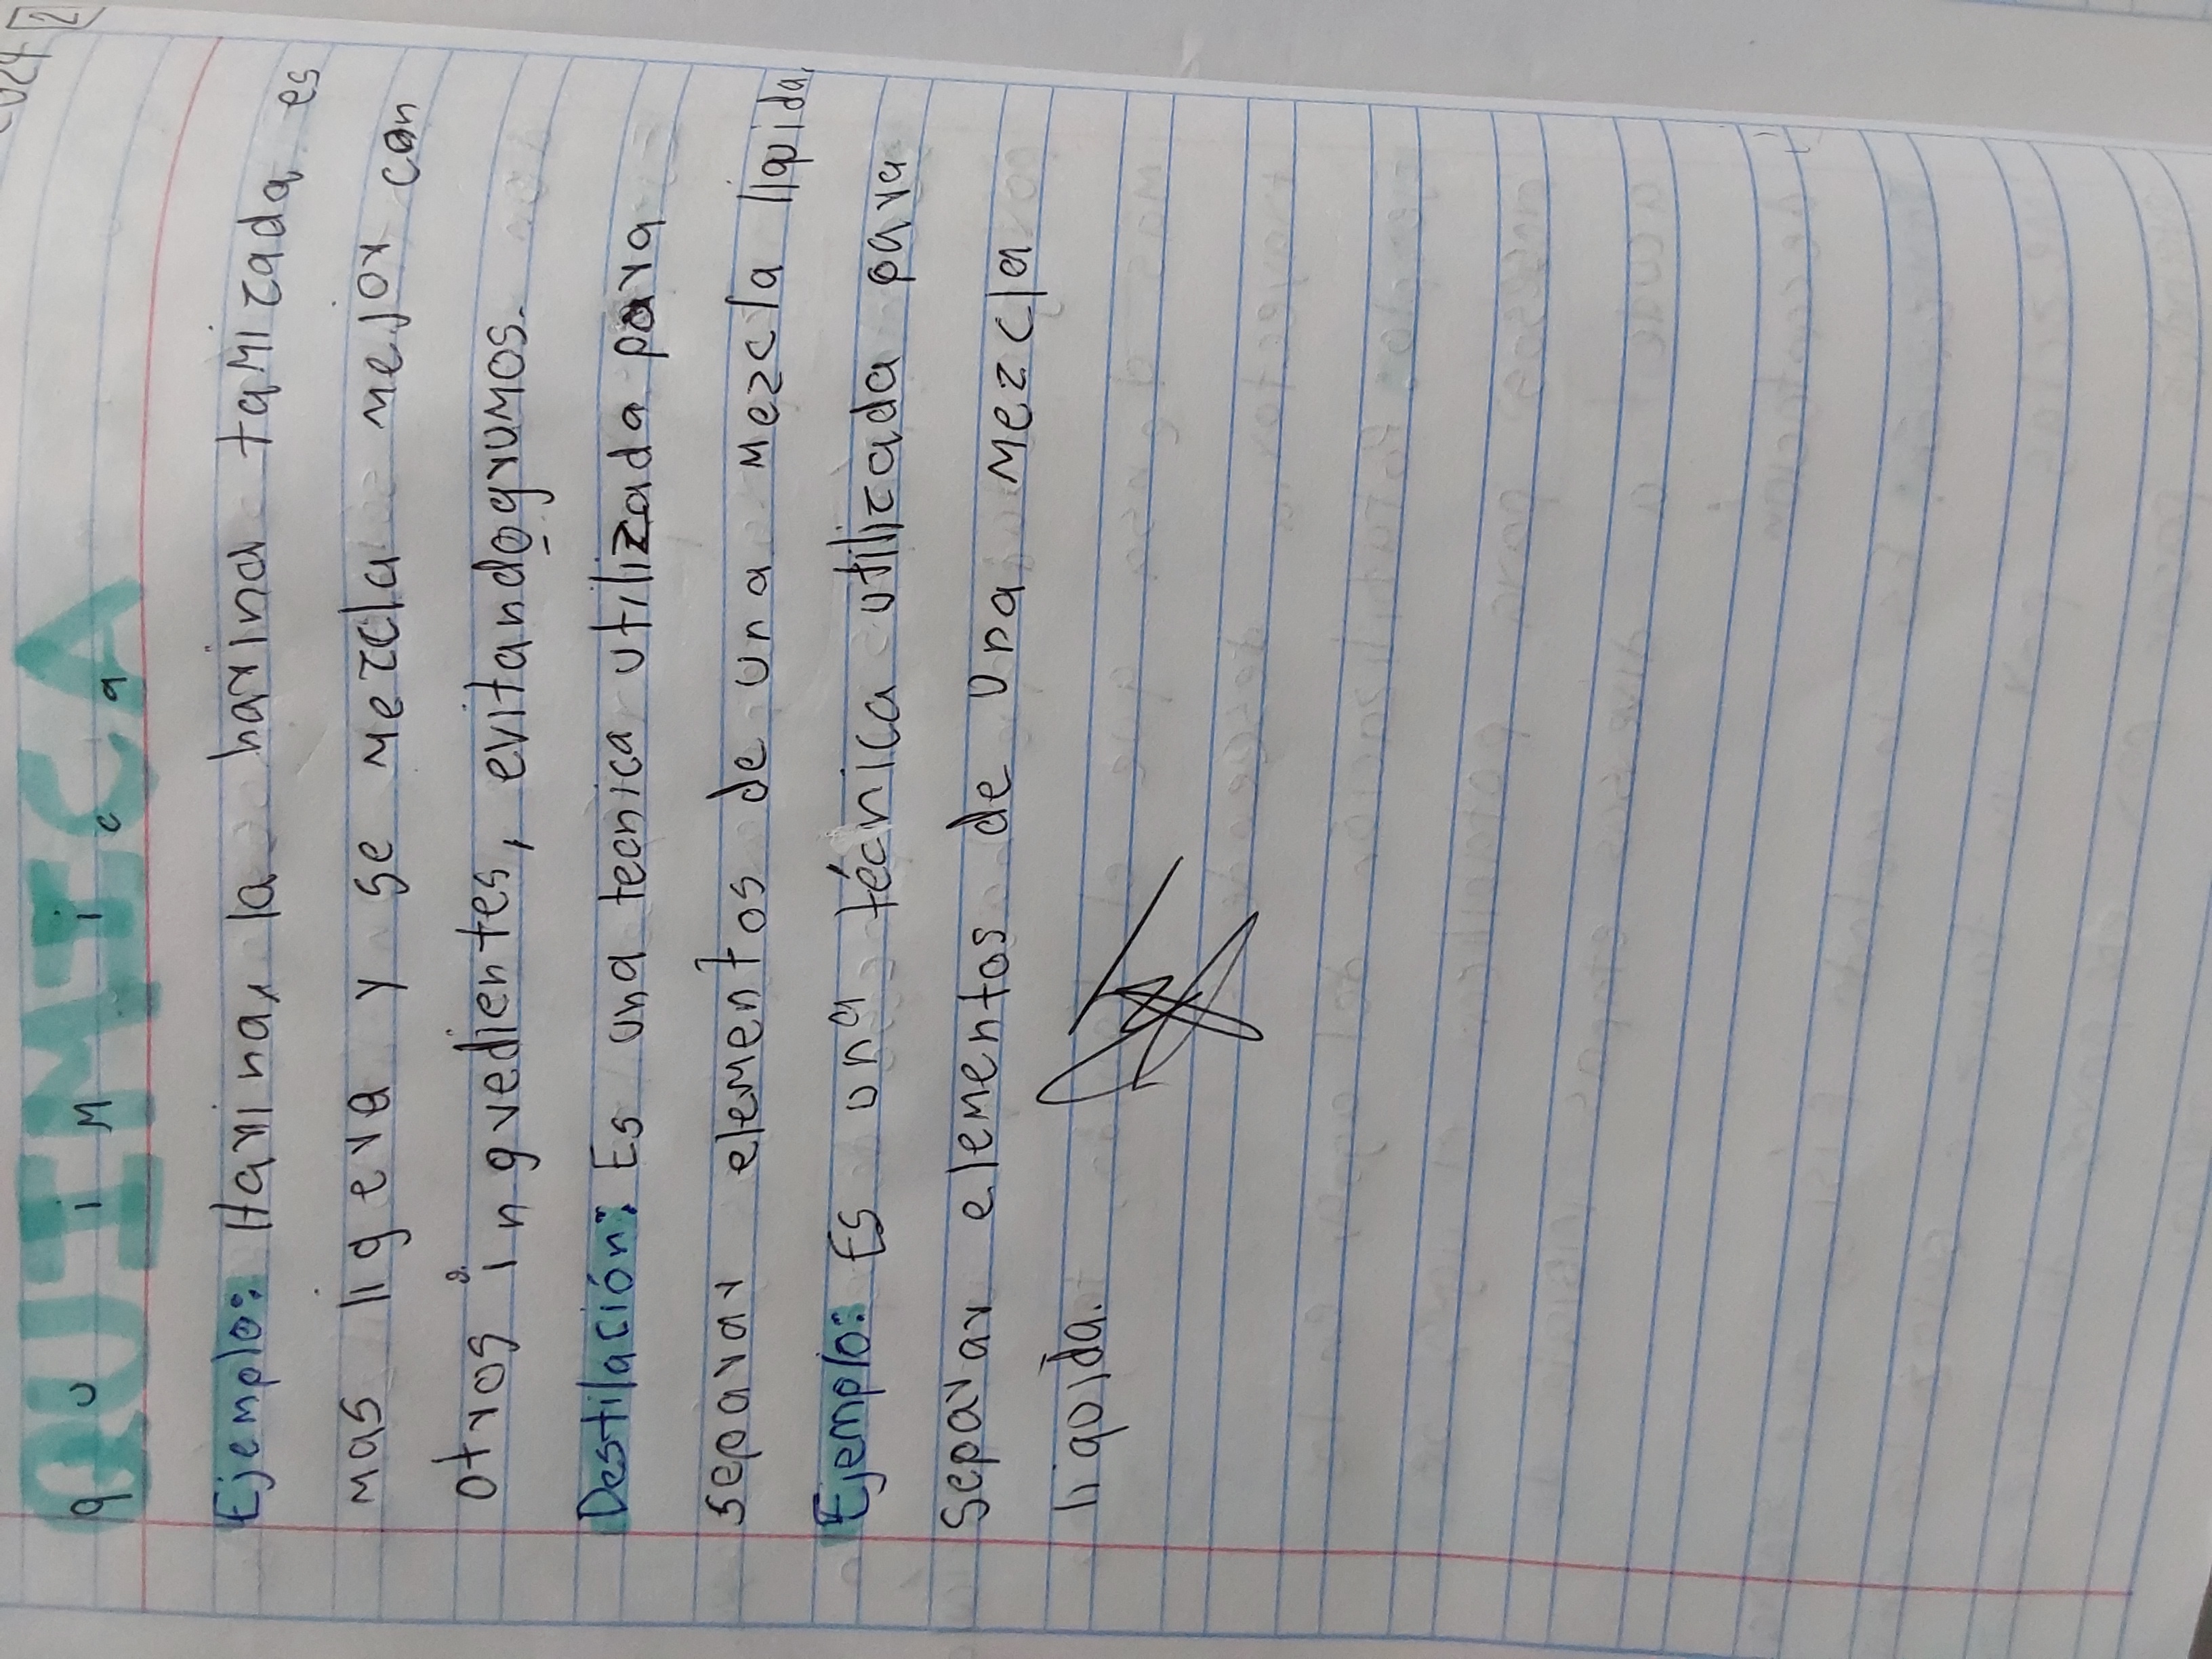 2024 2
QUIMICA
quimica
Ejemplo: Harinar la harina tamizada es
mas ligera y se mezcla mejor con
otros ingredientes, evitando grumos.
Destilación: Es una tecnica utilizada para
separar elementos de una mezcla liquida,
Ejemplo: Es una técnica utilizada para
separar elementos de una mezcla
liquida.